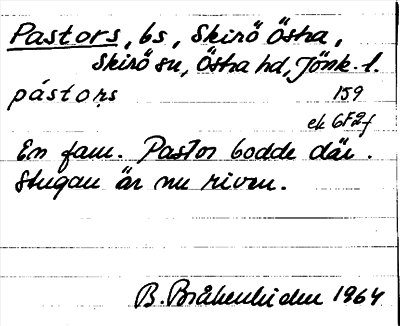 Pastors, bs, Skirö Östra,
Skirö sn, Östra hd, Jönk. l.
pástoṛs 159
ek 6F2f
En fam. Pastor bodde där.
Stugan är nu riven.
B. Bråkenhielm 1964